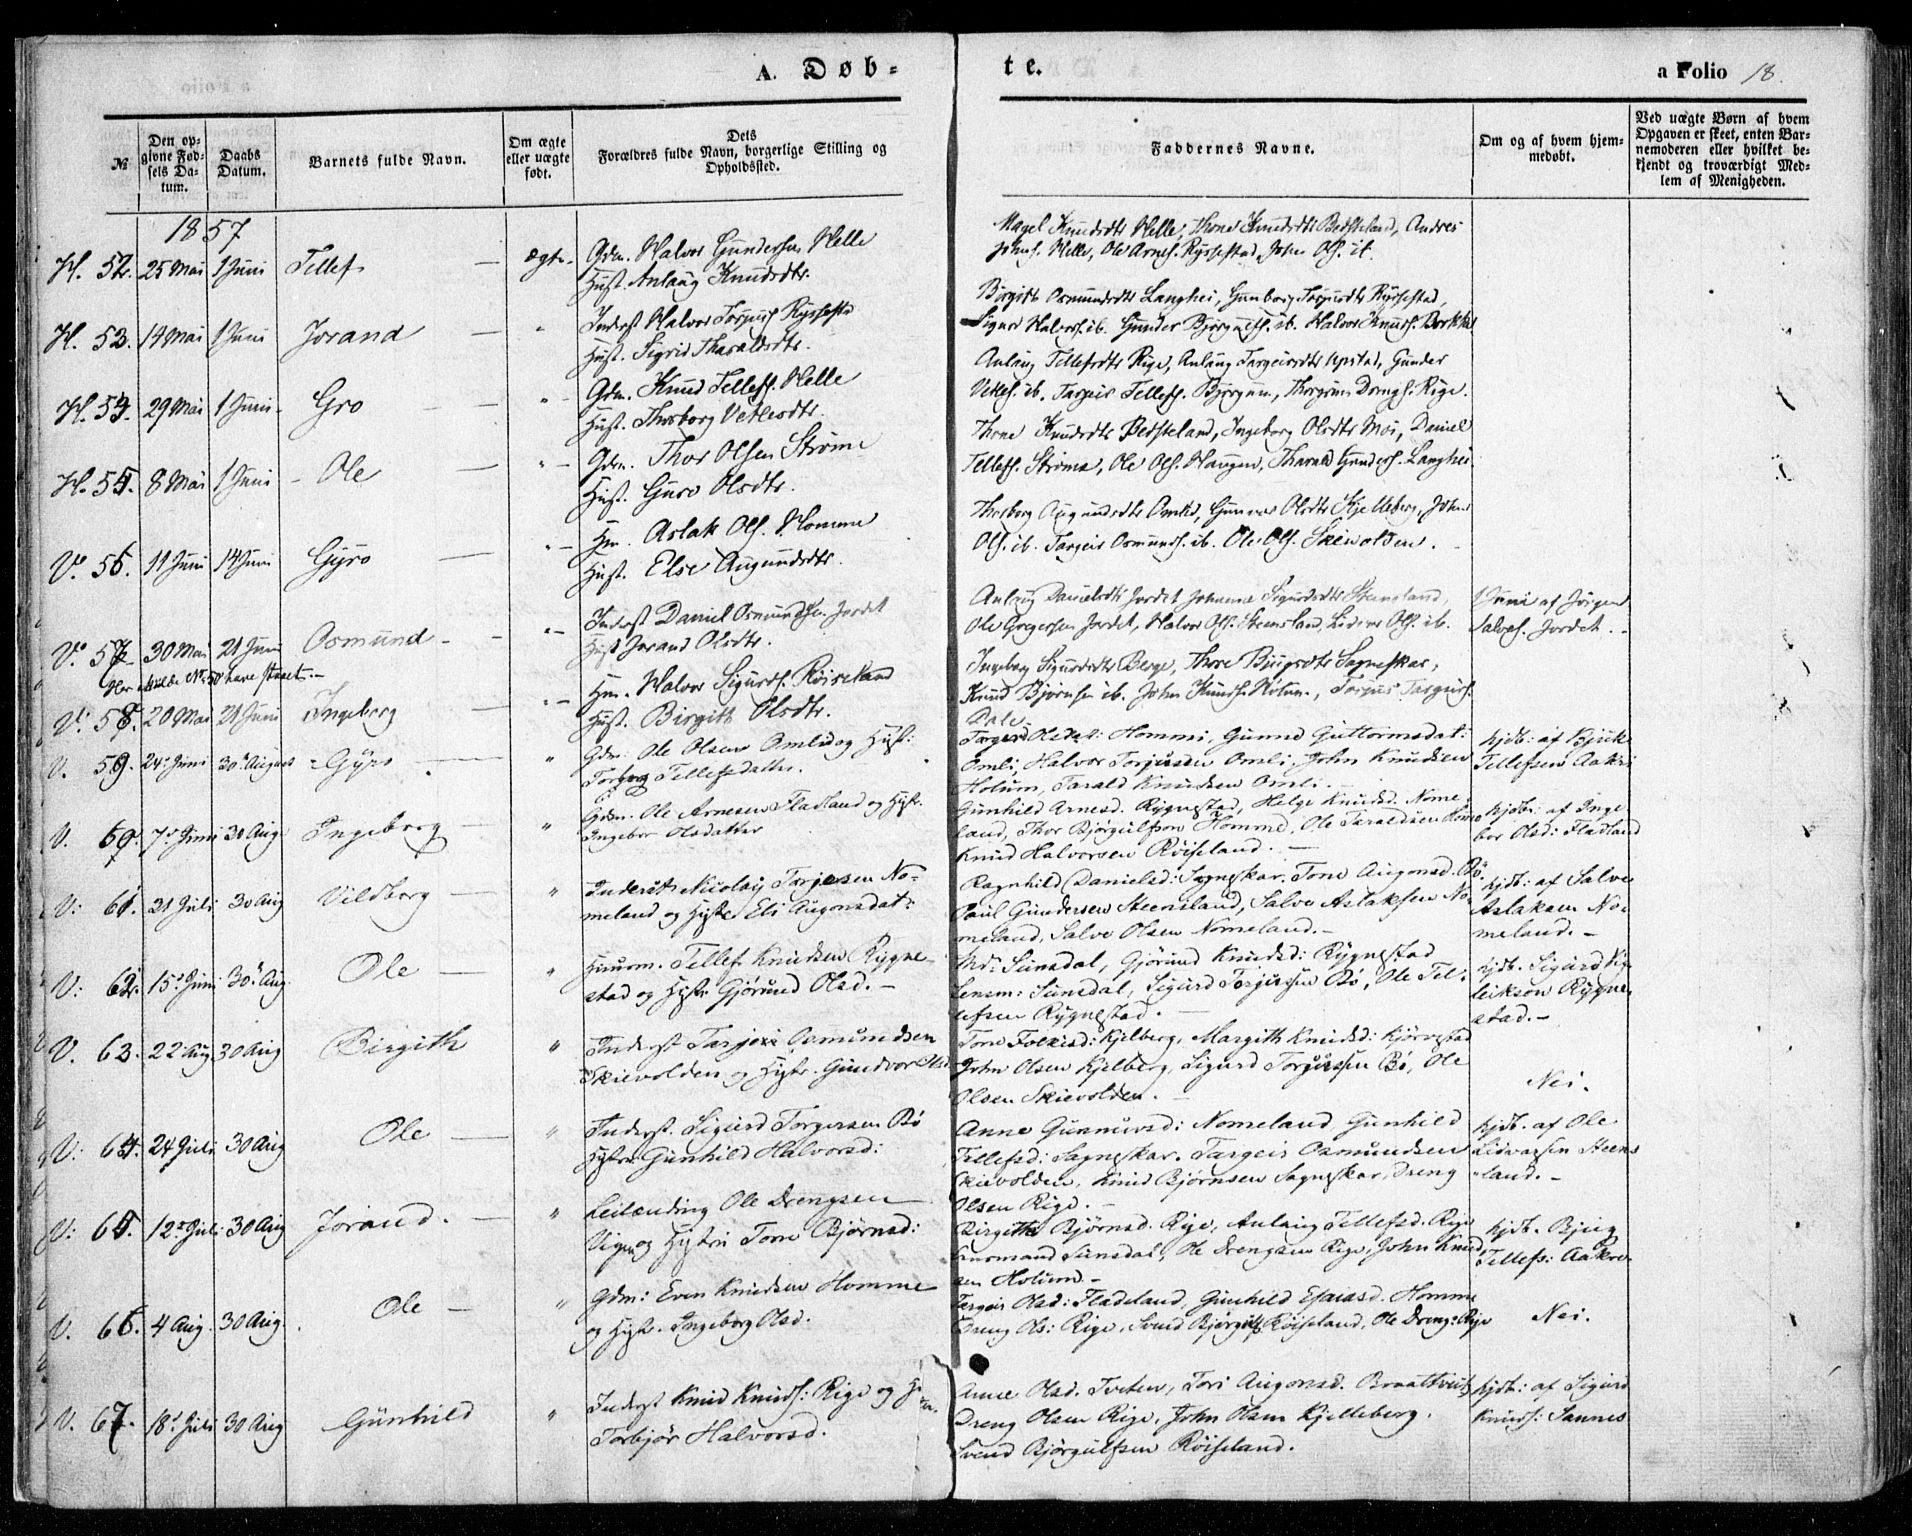 A. Døb-
te.
a Folio 18.
№
Den op-
givne Fød-
sels Da-
tum.
Daabs
Datum.
Barnets fulde Navn.
Om ægte
eller uægte
født.
Dets
Forældres fulde Navn, borgerlige Stilling og
Opholdssted.
Faddernes Navne.
Om og af hvem hjem-
medøbt.
Ved uægte Børn af hvem
Opgaven er skeet, enten Bar-
nemoderen eller hvilket be-
kjendt og troværdigt Med-
lem af Menigheden.
1857
H. 52. 25 Mai 1 Juni Tellef ægte Gdm. Halvor Gundersen Helle
Hust. Anlaug Knudsdtr.
Magel Knudsdtr Helle, Thone Knudsdtr Bedsteland, Andres
Johns. Helle, Ole Arnes. Ryssestad, John Ols. ib.
H. 53. 14 Mai 1 Juni Jorand Inderst Halvor Torjus. Ryssestad
Hust. Sigrid Tharaldsdtr.
Birgith Osmundsdtr Langhei, Gunborg Torjusdtr Ryssestad,
Sigurd Halvors. ib. Gunder Bjørgulfs. ib. Halvor Knuds.
H. 54. 29 Mai 1 Juni Gro Gdm. Knud Tellefs. Helle
Hust. Thorborg Vetlesdtr.
Anlaug Tellefsdtr Rige, Anlaug Targeirsdtr Upstad, Gunder
Vetles. ib. Targeir Tellefs. Bjørgum, Thorgrim Drengs. Rige.
H. 55. 8 Mai 1 Juni Ole Gdm. Thor Olsen Strøme
Hust. Guro Olsdtr.
Thone Knudsdtr Bedsteland, Ingeborg Olsdtr Moi, Daniel
Tellefs. Strøme, Ole Ols. Haugen, Tharald Gunders. Langhei.
V. 56. 11 Juni 14 Juni Gyro Hm. Aslak Ols. Homme
Hust. Else Augundsdtr.
Thorborg Augundsdtr Omlid, Gunvor Olsdtr Kjelleberg, John
Ols. ib. Targeir Osmunds. ib. Ole Ols. Skievolden.
V. 57. 30 Mai 21 Juni Osmund Inderst Daniel Osmundsen Jordet
Hust Jorand Olsdtr.
Anlaug Danielsdtr Jordet Johanne Sigurdsdtr Steensland,
Ole Gregersen Jordet, Halvor Ols. Steensland Lidvor Ols. ib.
1 Juni af Jørgen
Salves. Jordet.
Her skulde No 50 have staaet.
V. 58. 20 Mai 21 Juni Ingeborg Hm. Halvor Sigurds. Røiseland
Hust. Birgith Olsdtr.
Ingeborg Sigurdsdtr Berge, Thore Bjugsdtr Sagneskar,
Knud Bjørnsen ib. John Knuds. Holum, Torjus Targeirs.
Dale.
V. 59. 24 Juni 30 August Gyro Gdm. Ole Olsen Omlid og Hustr:
Torborg Tellefsdatter.
Targerd Olsdat: Hommi, Gunne Guttormsdat:
Omli, Halvor Torjusen Omli, John Knudsen
Holum, Tarald Knudsen Omli.
hjdb: af Bjuk
Tellefsen Aakri
V. 60. 7 Juni 30 Aug. Ingeborg Gdm. Ole Arnesen Fladland og Hustr.
Ingebor Olsdatter
Gunhild Arnesd. Rygnestad, Helge Knudsd. Nome-
land, Thor Bjørgulfson Homme, Ole Taraldsen Homme
Knud Halvorsen Røiseland.
hjdb: af Inge-
bor Olsd: Fladland
V: 61. 21 Juli 30 Aug Vildborg Inderst Nicolay Tarjesen No-
meland og Hustr Eli Augonsdat:
Ragnhild Danielsd: Sagneskar. Tone Augonsd. Bö.
Paul Gundersen Steensland, Salve Aslaksen No-
meland, Salve Olsen Nomeland.
hjdb: af Salve
Aslaksen No-
meland.
V: 62. 15 Juni 30 Aug. Ole Huusm. Tellef Knudsen Rygne-
stad og Hustr Gjørund Olsd.
Md: Sunsdal, Gjörund Knudsd: Rygnestad
Lensm: Sunsdal, Sigurd Torjussen Bö, Ole Tel-
lefsen Rygnestad.
hjdb. Sigurd
leikson Rygne-
stad.
V. 63. 22 Aug 30 Aug Birgith Inderst Tarjeir Osmundsen
Skievolden og Hustr. Gundvor Olsd
Tone Folkisd: Kjelberg, Margith Knudsd:
John Olsen Kjelberg, Sigurd Torjussen Bö, Ole
Olsen Skievolden.
Nei.
V: 64. 24 Juli 30 Aug Ole Inderst. Sigurd Torgersen Bö
Hustru Gunhild Halvorsd:
Anne Gunnersd: Nomeland Gunhild
Tellefsd: Sagneskar. Targeir Osmundsen
Skievolden, Knud Bjørnsen Sagneskar, Dreng
Olsen Rige.
hjdb. af Ole
Lidvorsen Steens
land.
V: 65. 12 Juli 30 Aug Jorand. Leilænding Ole Drengsen
Vigen og Hustru Tone Bjørnsd:
Birgithe Bjørnsd. Rige, Anlaug Tellefsd. Rige
Lensmand Sunsdal, Ole Drengsen Rige, John Knud-
sen Holum.
hjdb. Bjug
Tellefs: Aakre
V. 66. 4 Aug. 30 Aug. Ole Gdm: Even Knudsen Homme
og Hustr. Ingeborg Olsd.
Targeir Olsd: Fladeland, Gunhild Esaiasd. Homme
Dreng Ols: Rige, Svend Bjørgulfs Røiseland, Ole Drengs Rige
Nei.
V. 67. 18 Juli 30 Aug Gunhild Inderst Knud Knuds: Rige og
Torbjør Halvorsd.
Anne Olsd. Tveten, Tori Augonsd.
Dreng Olsen Rige, John Olsen Kjelleberg.
Svend Bjørgulfsen Røiseland.
hjdb: af Sigurd
Knuds: Sannes